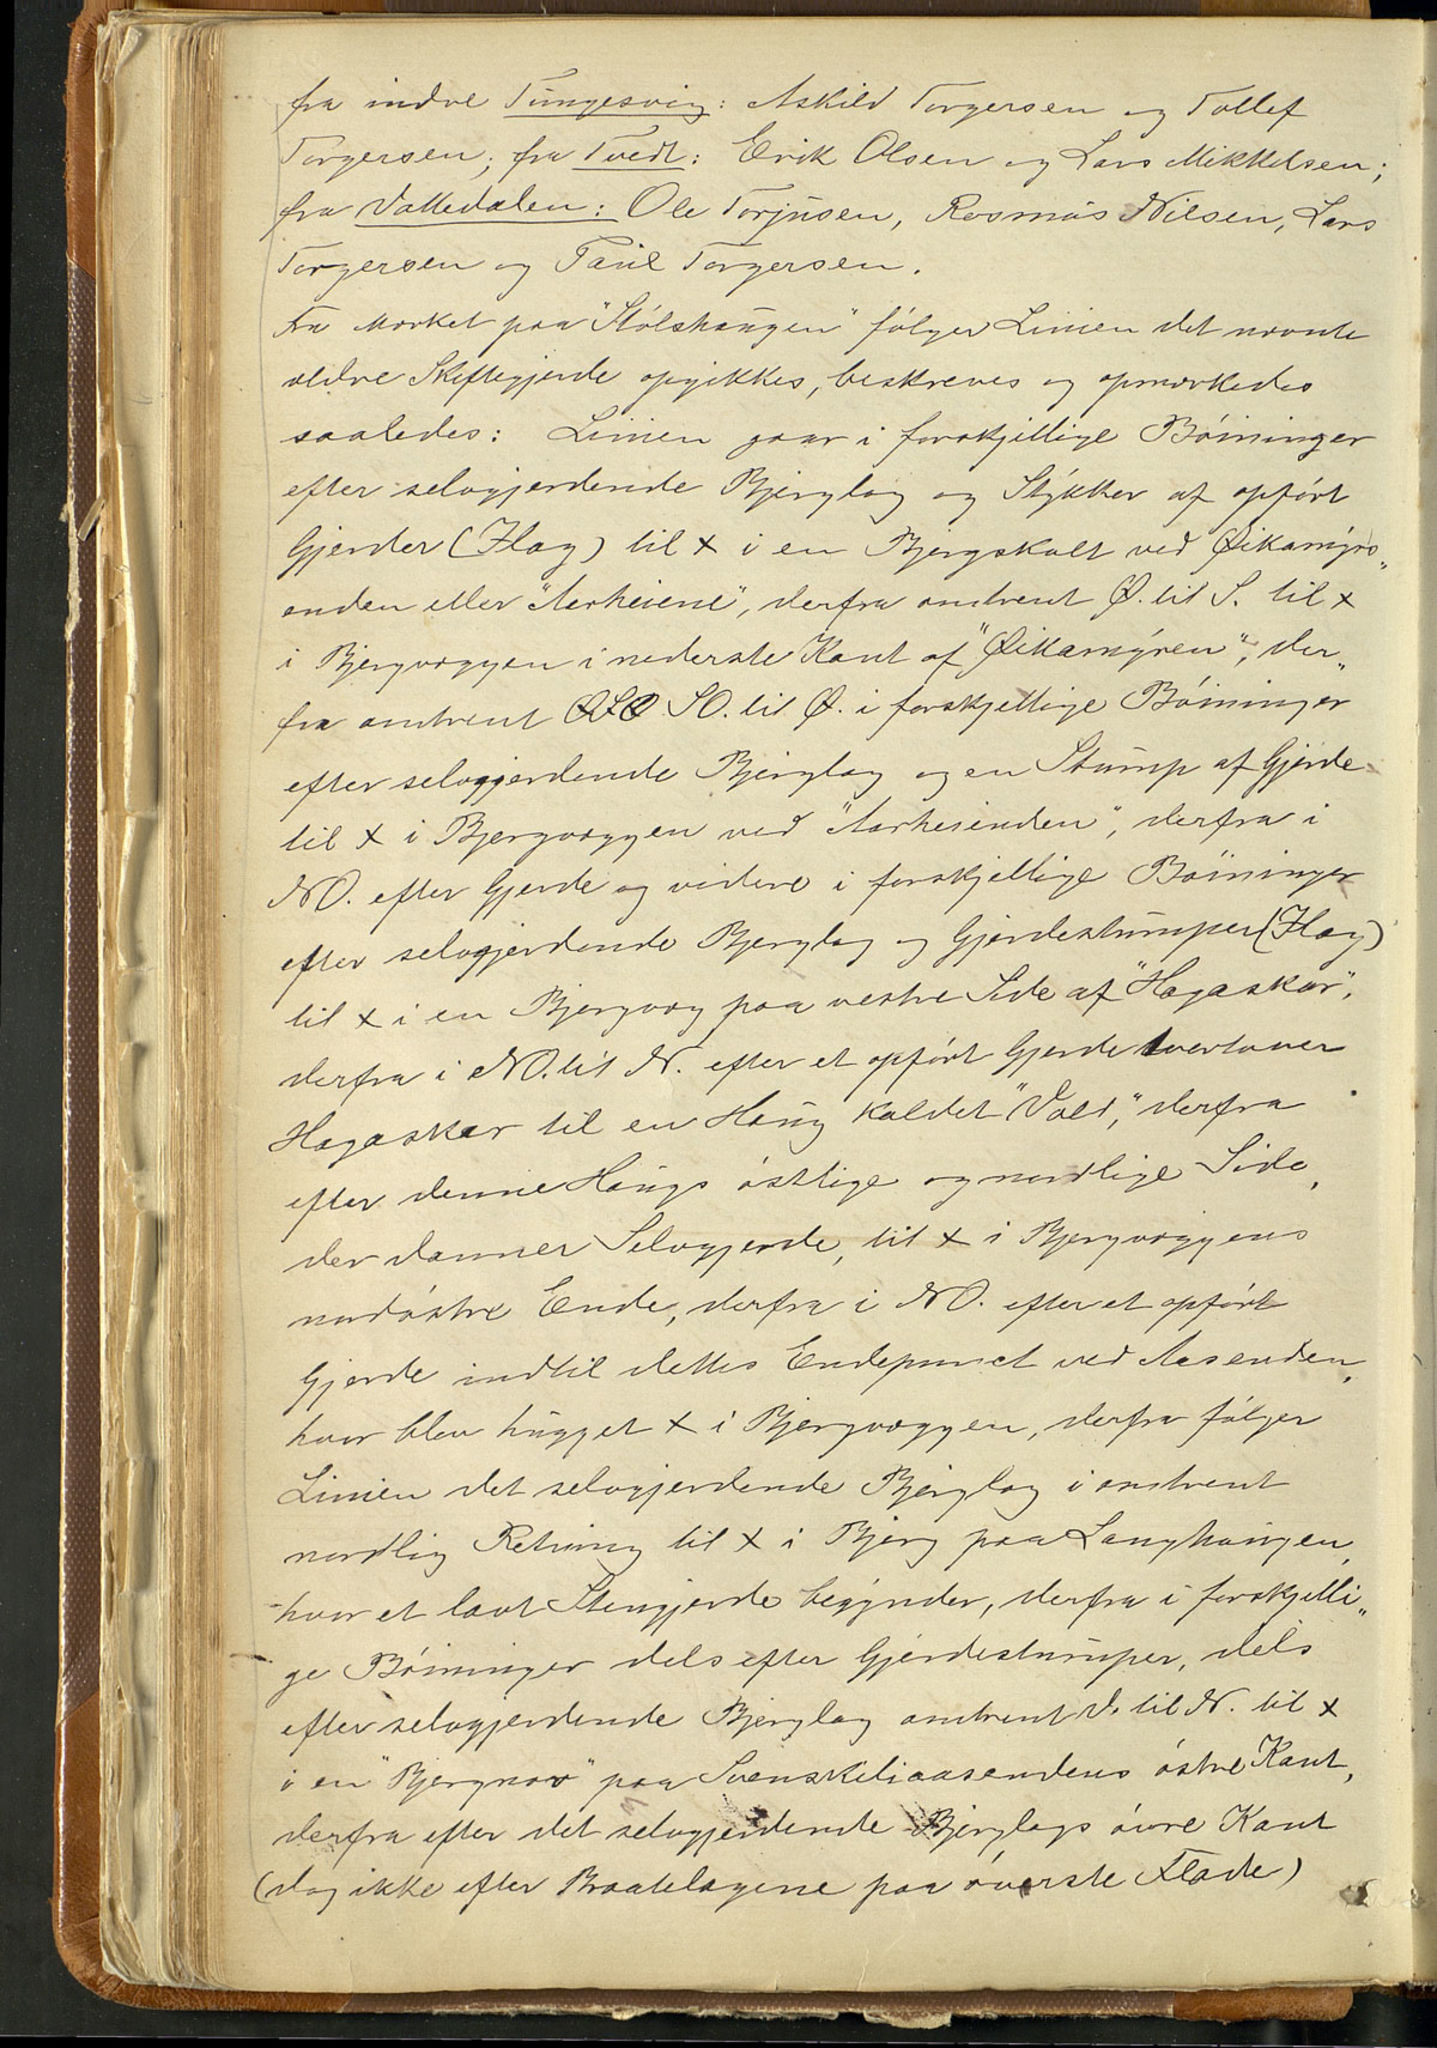 fra indre Tungesvig: Askild Torgersen og Tollef
Torgersen; fra Tvedt: Erik Olsen og Lars Mikkelsen;
fra Vattedalen: Ole Torjusen, Rasmus Nilsen, Lars
Torgersen og Paul Torgersen.
Fra Mærket paa "Stølshaugen" følger Linien det nævnte
ældre Skiftegjerde opgikkes, beskreves og opmærkedes
saaledes: Linien gaar i forskjellige Bøininger
efter selvgjerdende Bjerglag og Stykker af opført
Gjerder (Hag) til x i en Bjergskolt ved Øikamyrs„
enden eller "Aarheiene", derfra omtrent Ø. til S. til x
i Bjergvæggen i nederste Kant af "Øikamyren", der„
fra omtrent SO. til Ø. i forskjellige Bøininger
efter selvgjerdende Bjerglag og en Stump af Gjerde
til x i Bjergvæggen ved "Aarheienden", derfra i
NO. efter Gjerde og videre i forskjellige Bøininger
efter selvgjerdende Bjerglag og Gjerdestumper (Hag)
til x i en Bjergvæg paa vestre Side af "Hagaskar",
derfra i NO. til N. efter et opført Gjerde tvertover
Hagaskar til en Haug kaldet "Vold", derfra
efter denne Haugs østlige og nordlige Side,
der danner Selvgjerde, til x i Bjergvæggens
nordøstre Ende, derfra i NO. efter et opført
Gjerde indtil dettes Endepunct ved Aasenden,
hvor blev hugget x i Bjergvæggen, derfra følger
Linien det selvgjerdende Bjerglag i omtrent
nordlig Retning til x i Bjerg paa Langhaugen,
hvor et lavt Stengjerde begynder, derfra i forskjelli„
ge Bøininger dels efter Gjerdestumper, dels
efter selvgjerdende Bjerglag omtrent V. til N. til x
i en "Bjergnov" paa Svenskeliaasendens østre Kant,
derfra efter det selvgjerdende Bjerglags øvre Kant
(dog ikke efter Braatelagene paa øverste Flade)